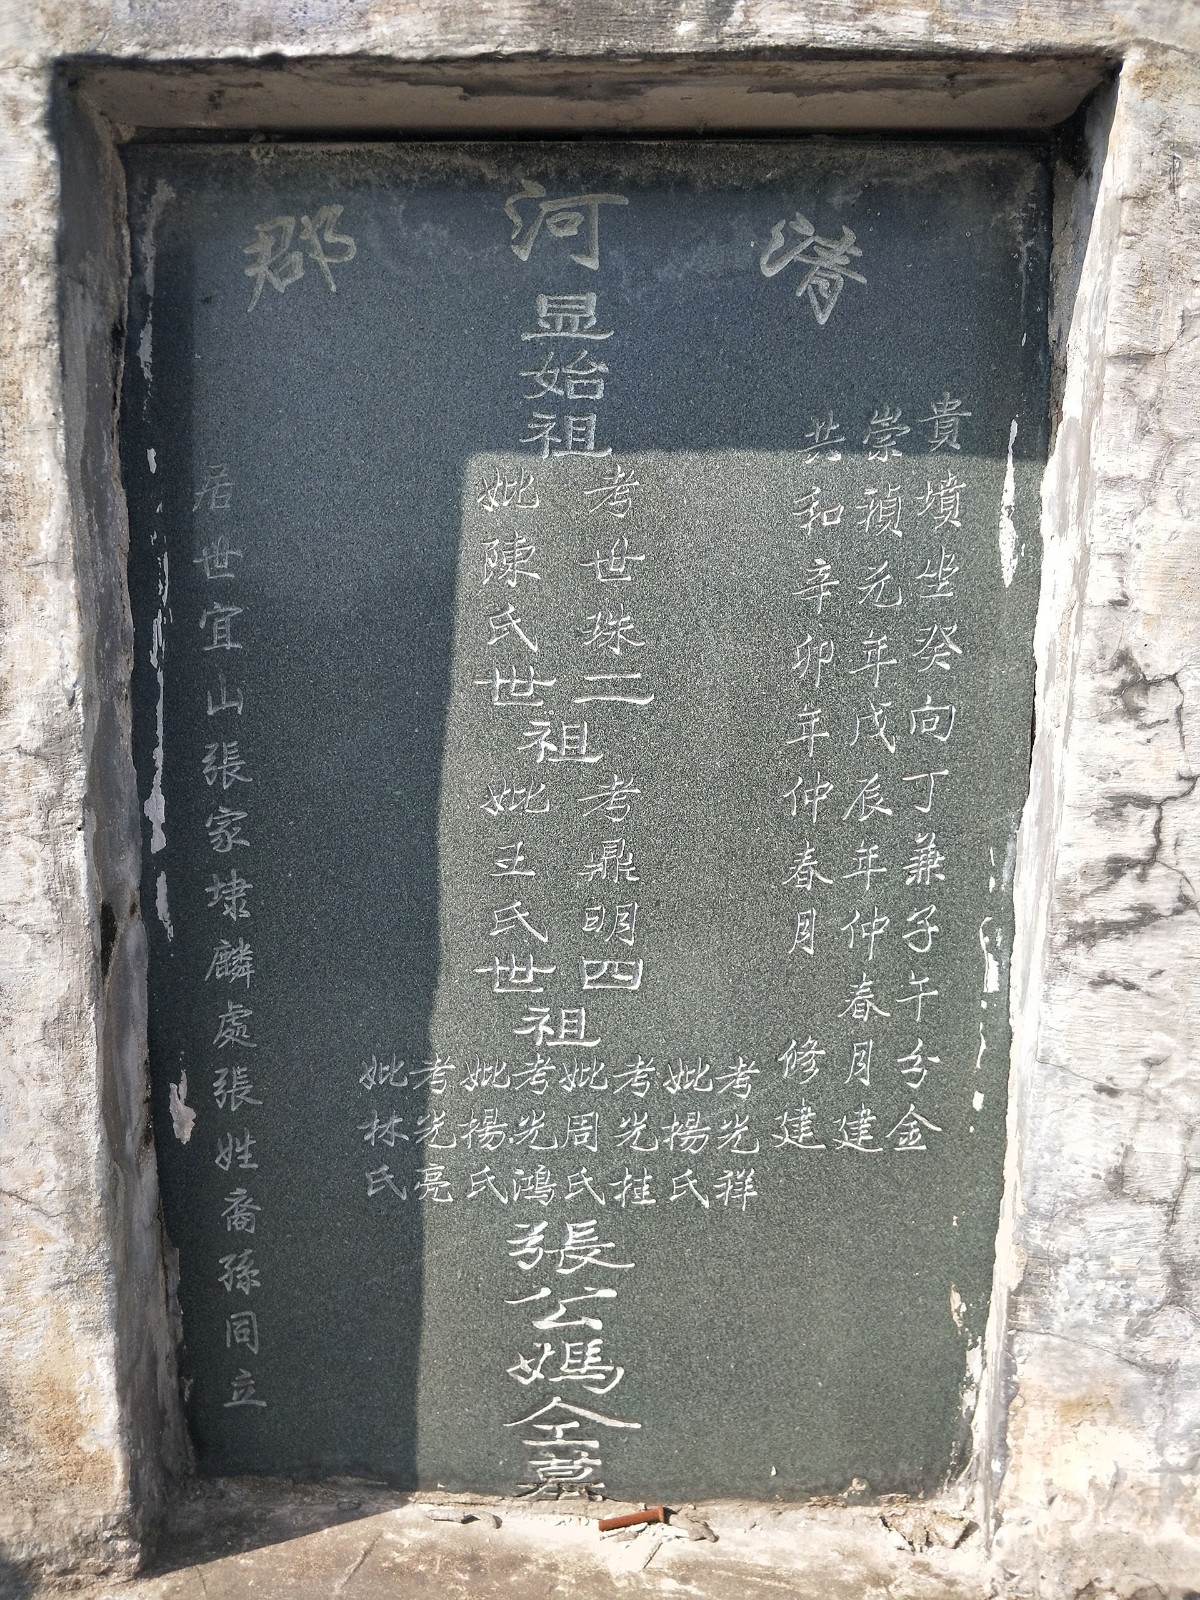 清河郡
貴墳坐癸向丁兼子午分金
崇禎元年戊辰年仲春月建
共和辛卯年仲春月修建
显始祖
考世珠二
妣陳氏世
祖
考鼎明四
妣王氏世
祖
考光祥
妣揚氏
考光挂
妣周氏
考光鴻
妣揚氏
考光亮
妣林氏
張公媽仝墓
居世宜山張家埭麟處張姓裔孫同立